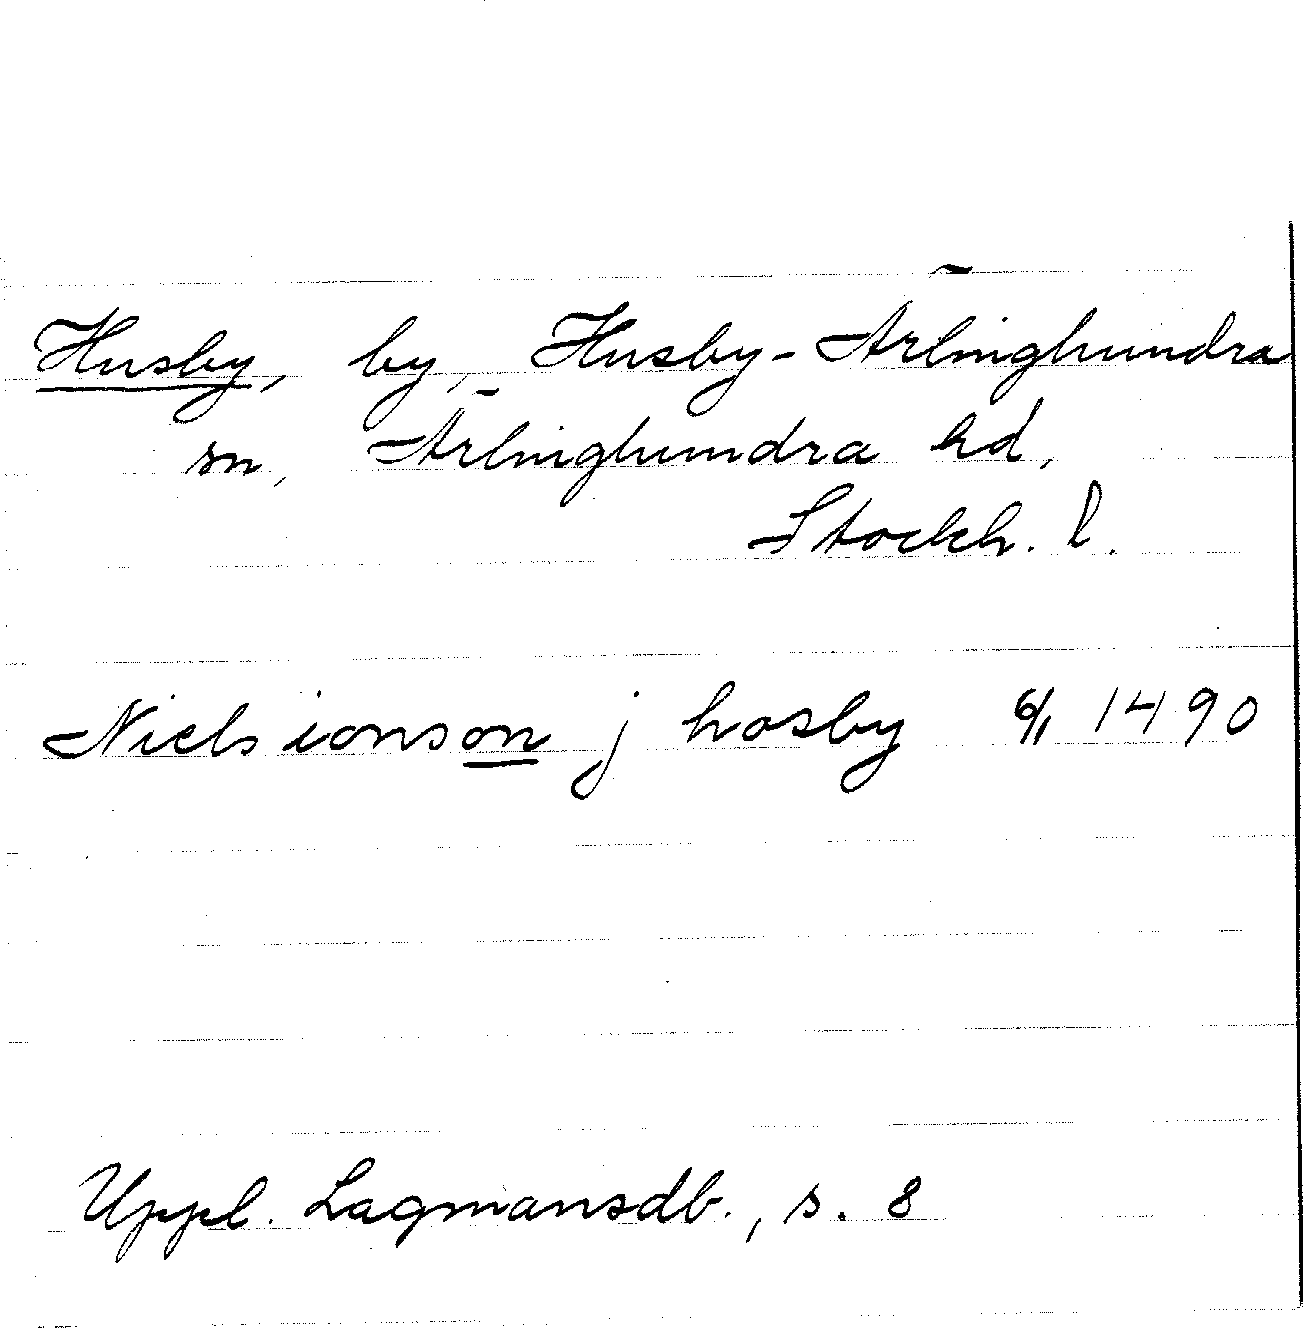 Husby, by, Husby-Ärlinghundra
sn, Ärlinghundra hd,
Stockh. l.
Niels ionson j hosby 6/1 1490
Uppl. Lagmansdb., s. 8